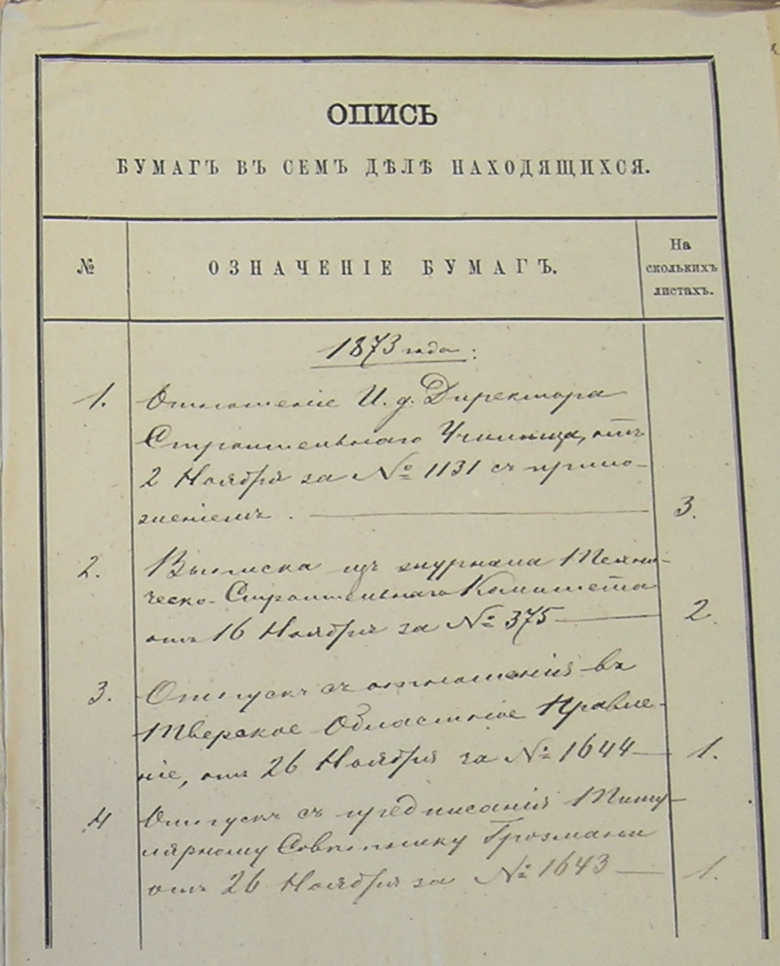 ОПИСЬ
БУМАГЪ ВЪ СЕМЪ ДѢЛѢ НАХОДЯЩИХСЯ.
№
ОЗНАЧЕНІЕ БУМАГЪ.
На
сколькихъ
листахъ.
1873 года:
1. Отношеніе И. д. Директора
Строительнаго Училища, отъ
2 Ноября за № 1131 съ прило-
женіемъ. — 3.
2. Выписка изъ журнала Техни-
ческо-Строительнаго Комитета
отъ 16 Ноября за № 375 — 2.
3. Отпускъ съ отношенія въ
Областное Правле-
ніе, отъ 26 Ноября за № 1644 — 1.
4 Отпускъ съ предписанія Титу-
лярному Совѣтнику
отъ 26 Ноября за № 1643 — 1.